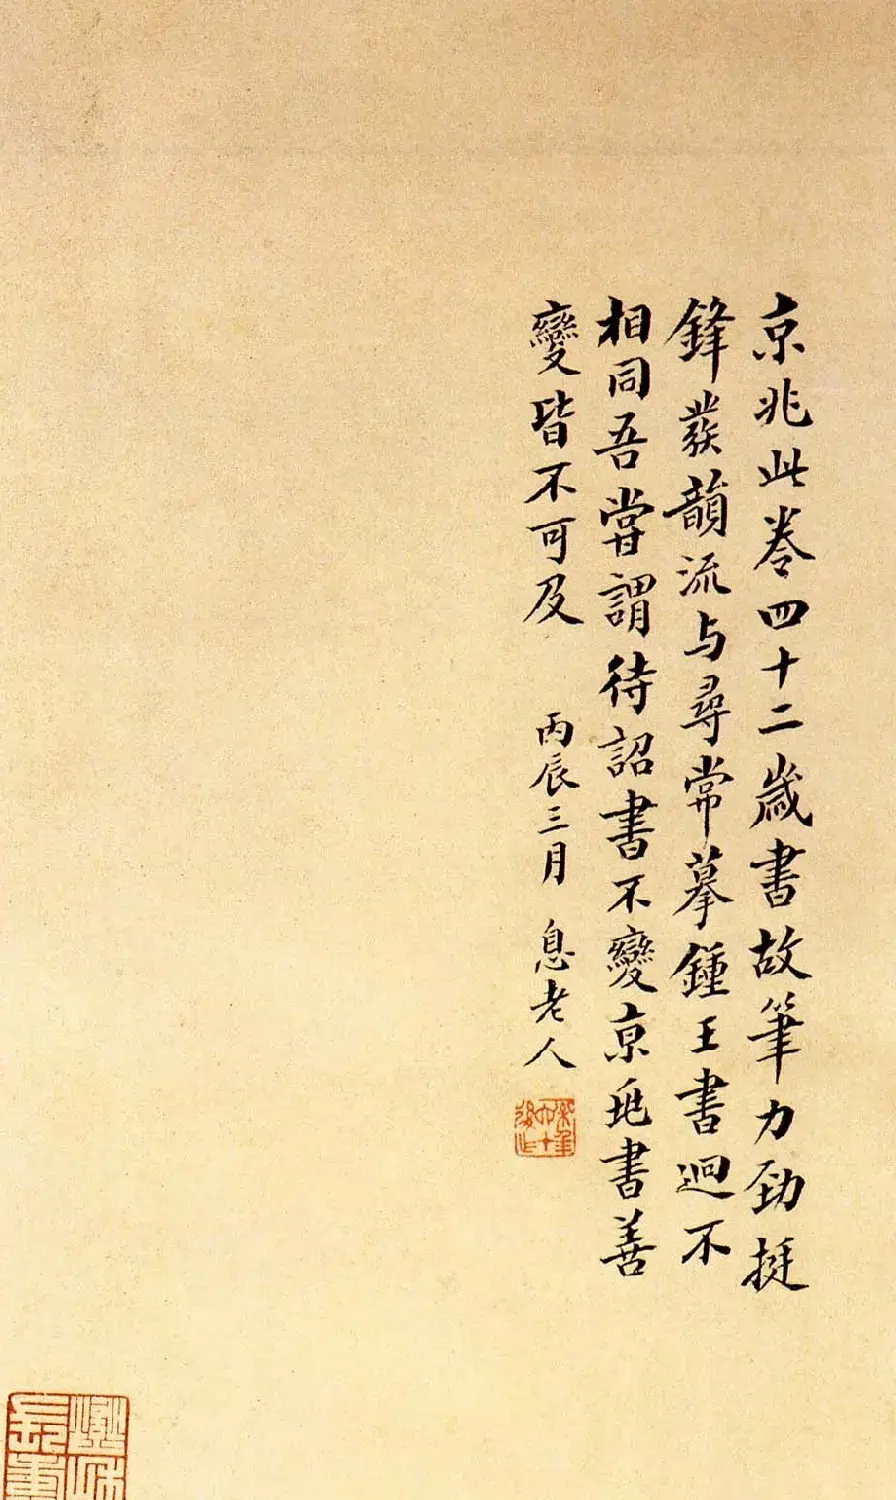 京兆此卷四十二歲書故筆力勁挺
鋒發韻流与尋常摹鍾王書迥不
相同吾嘗謂待詔書不變京兆書善
變皆不可及　丙辰三月　息老人